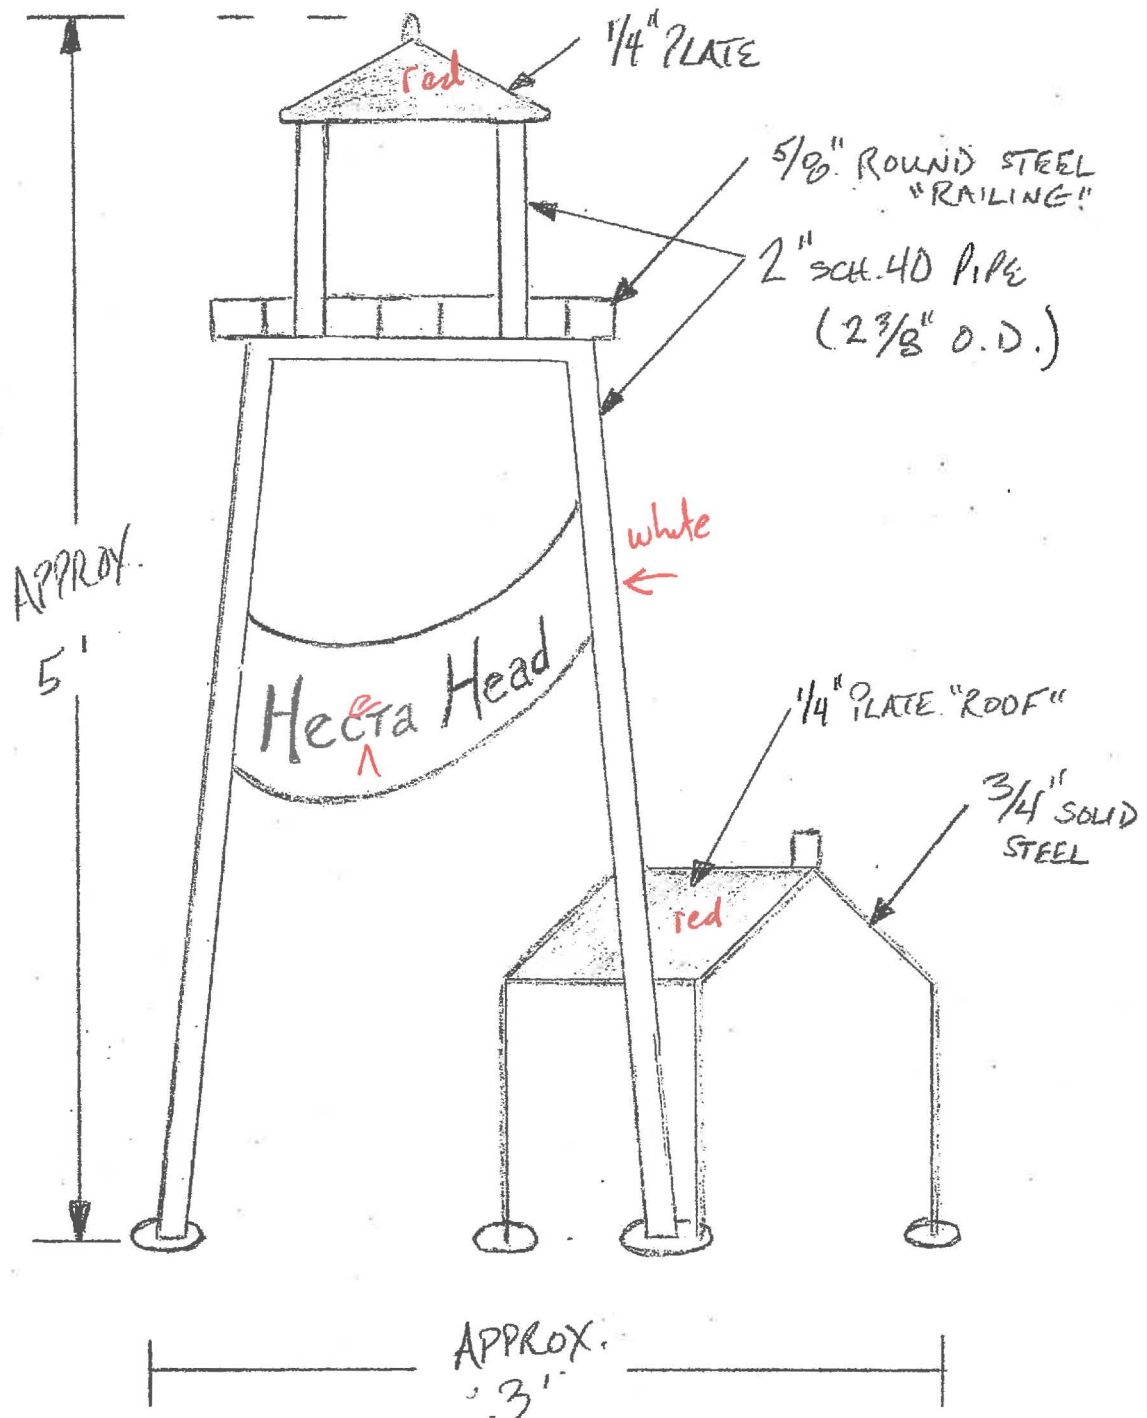 1/4" PLATE
red
5/8" ROUND STEEL
"RAILING"
2" SCH. 40 PIPE
(2 3/8" O.D.)
white
APPROX.
5'
Hecta Head
e
^
1/4" PLATE "ROOF"
3/4" SOLID
STEEL
red
APPROX.
3'